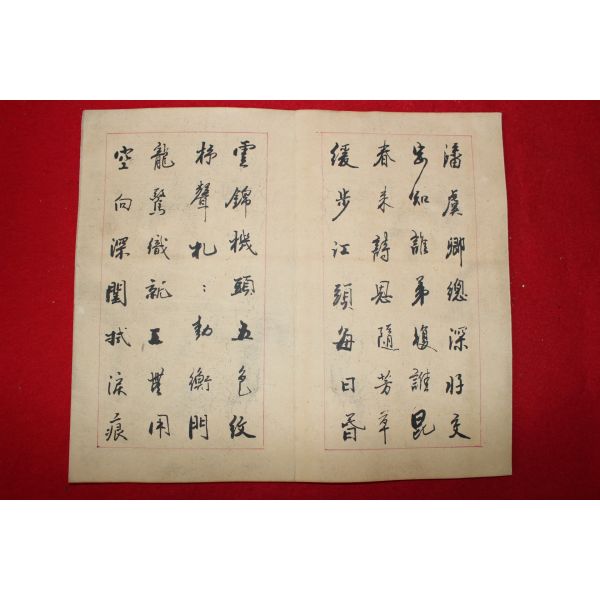 潘虞卿總深好交
安知誰弟複誰昆
春來詩思隨芳草
緩步江頭每日昏
雲錦機頭五色紋
杼聲札〻動衡門
龍鸞織就工無用
空向深閨拭淚痕